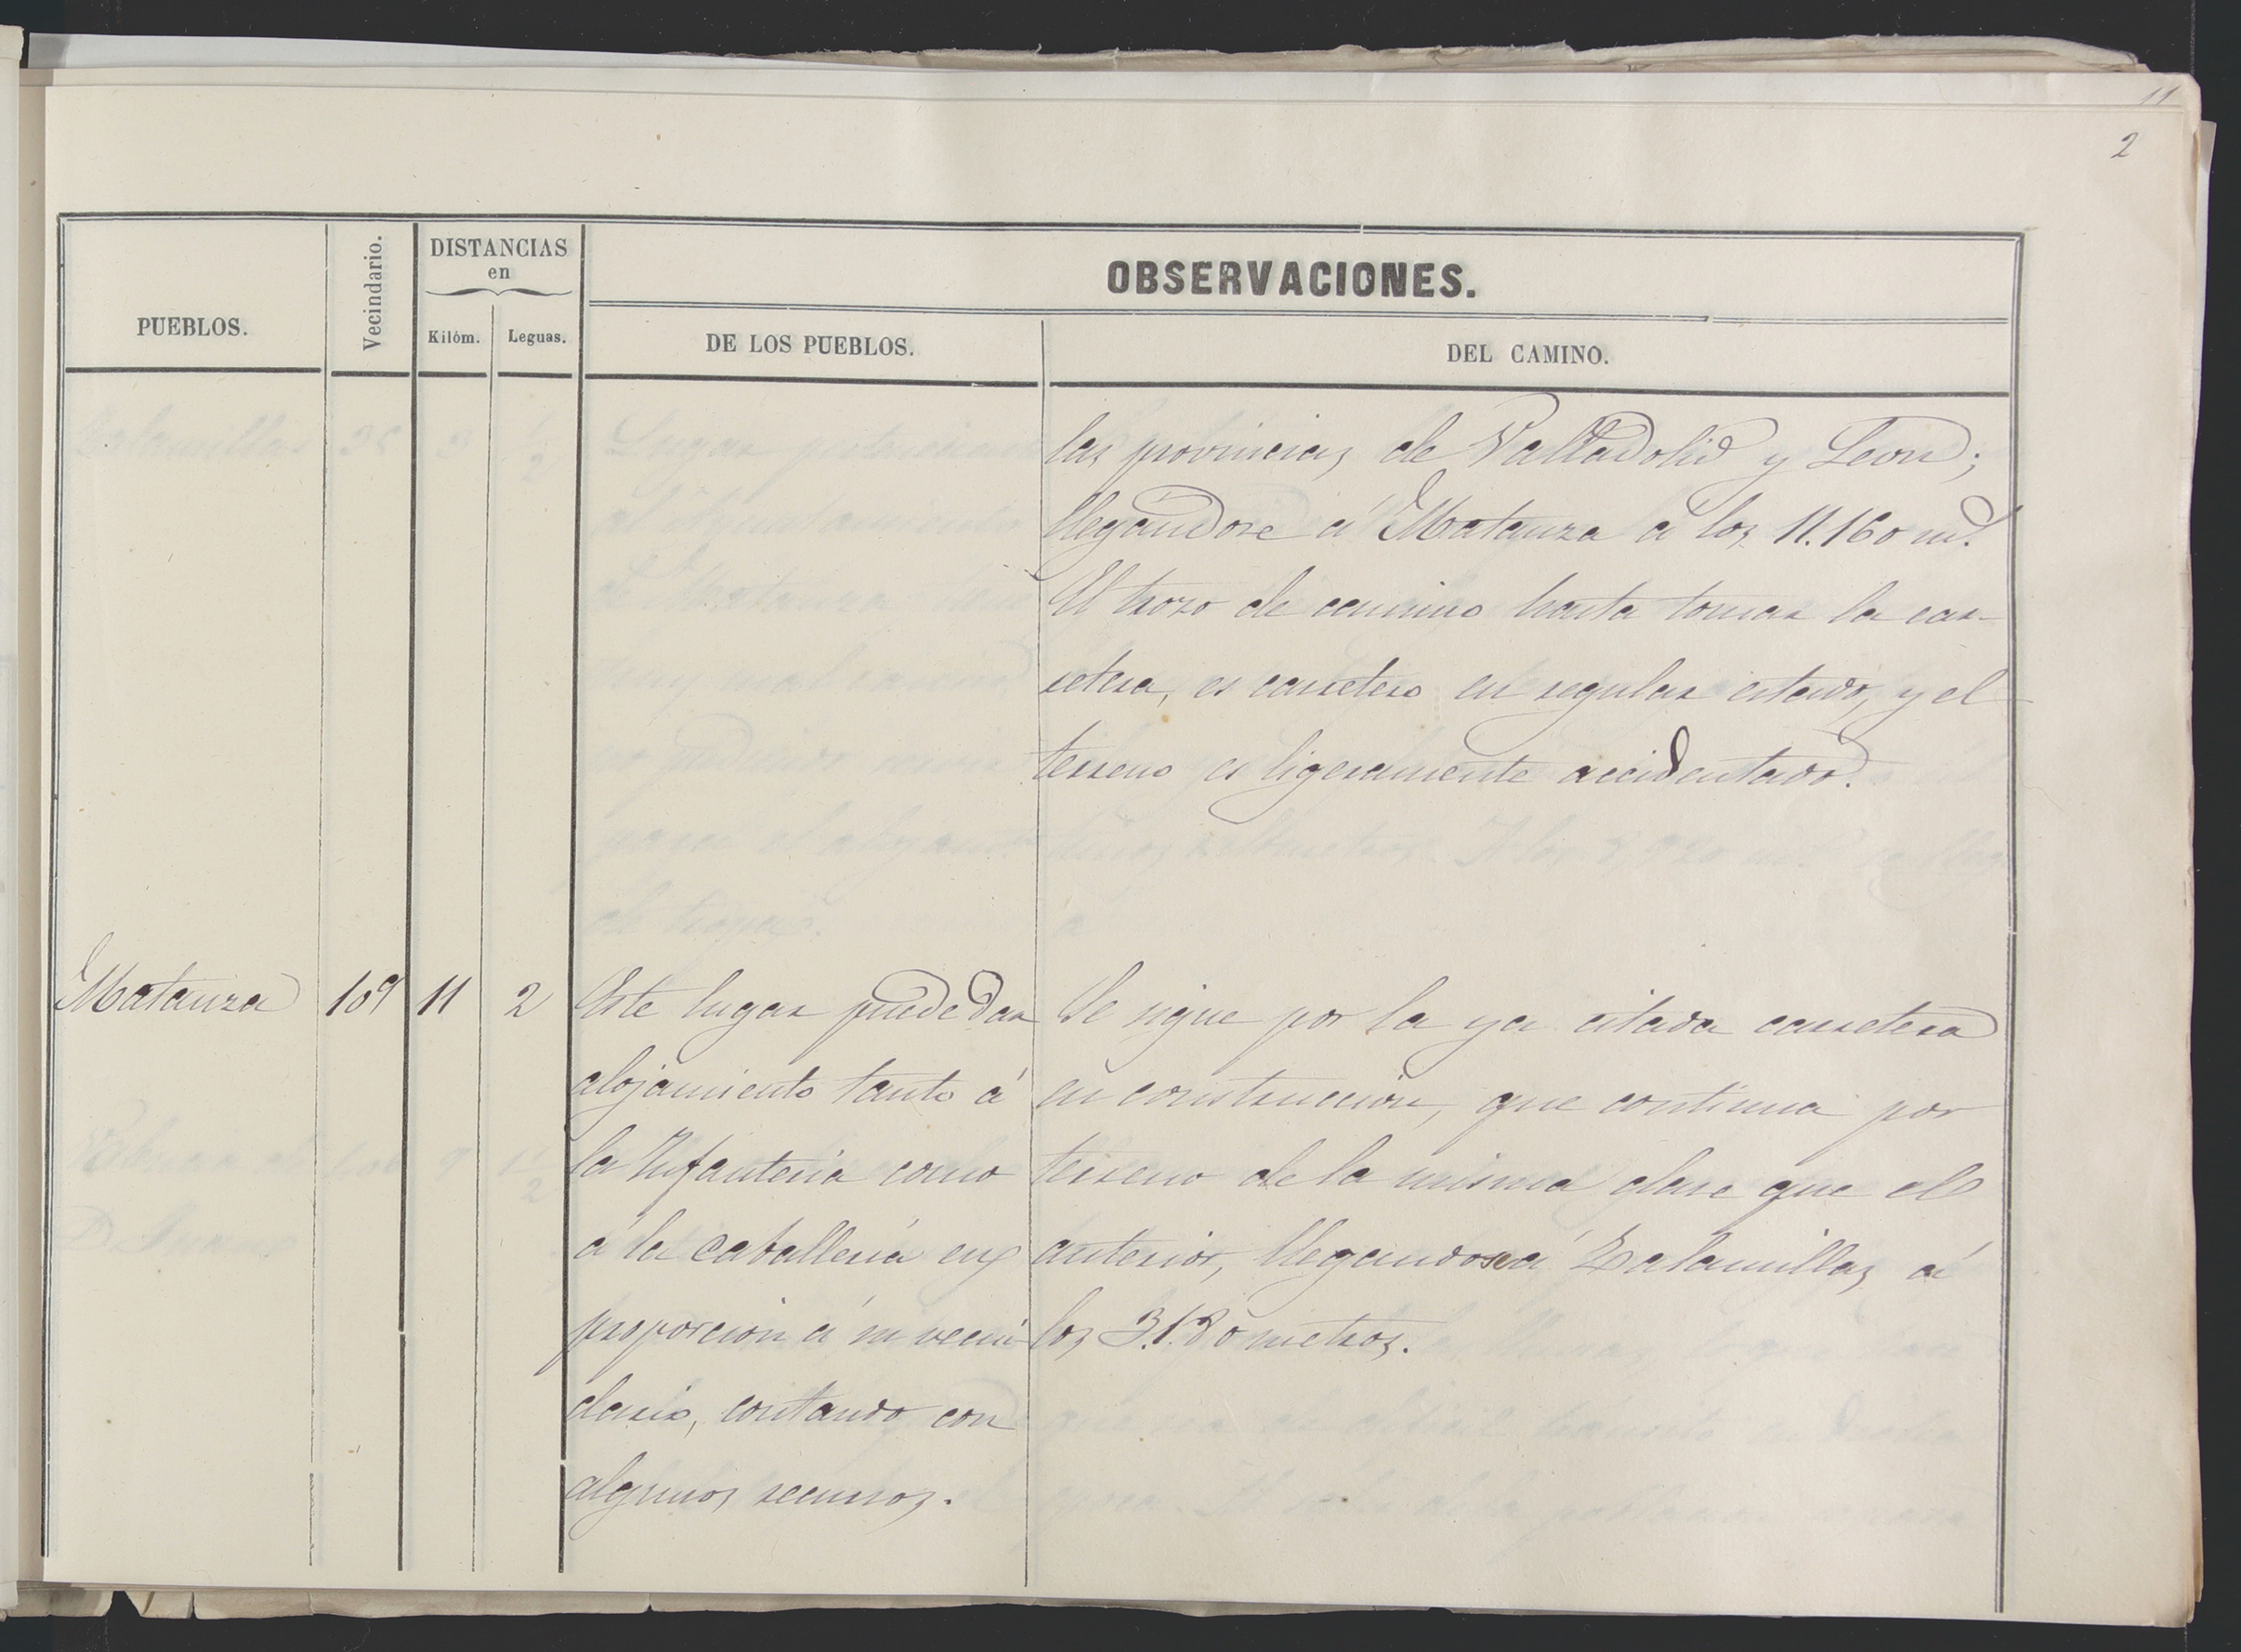 11
2
PUEBLOS.
Vecindario.
DISTANCIAS
en
Kilóm.
Leguas.
OBSERVACIONES.
DE LOS PUEBLOS.
DEL CAMINO.
las provincias de Valladolid y Leon;
llegándose á Matanza á los 11.160 m.s
El trozo de camino hasta tomar la car-
retera, es carretero en regular estado, y el
terreno es ligeramente accidentado.
Matanza
109
11
2
Este lugar puede dar
alojamiento tanto á
la Infantería como
á la caballería en
proporcion á su vecin
dario, contando con
algunos recursos.
Se sigue por la ya citada carretera
en construccion, que continua por
terreno de la misma clase que el
anterior, llegandose á Zalamillas á
los 3.180 metros.